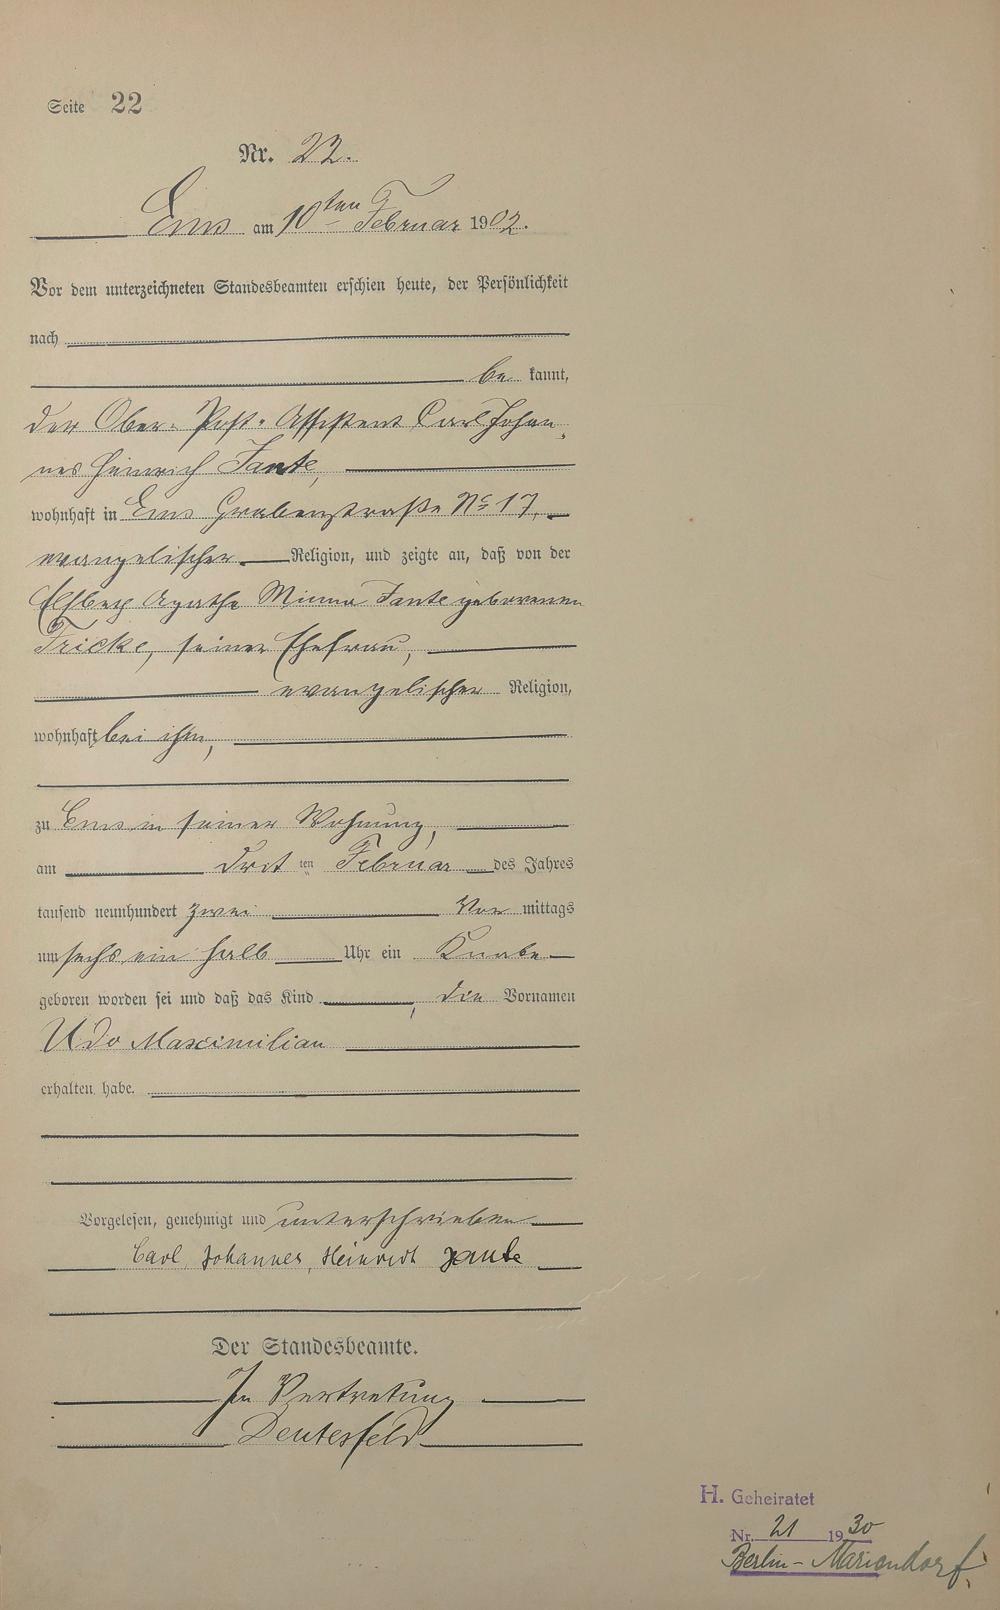 Seite 22
Nr. 22.
Ems am 10ten Februar 1902.
Vor dem unterzeichneten Standesbeamten erschien heute, der Persönlichkeit
nach
be kannt,
der Ober-Post-Assistent Carl Johan-
nes Heinrich Jante,
wohnhaft in Ems Grabenstraße No 17,
evangelischer Religion, und zeigte an, daß von der
Elsbeth Agathe Minna Jante geborenen
Fricke, seiner Ehefrau,
evangelischer Religion,
wohnhaft bei ihm,
zu Ems in seiner Wohnung,
am drit ten Februar des Jahres
tausend neunhundert zwei Vor mittags
um sechs ein halb Uhr ein Knabe
geboren worden sei und daß das Kind, die Vornamen
Udo Maximilian
erhalten habe.
Vorgelesen, genehmigt und unterschrieben
Carl, Johannes, Heinrich Jante
Der Standesbeamte.
In Vertretung
Deutesfeld
H. Geheiratet
Nr. 21 1930
Berlin-Mariendorf.